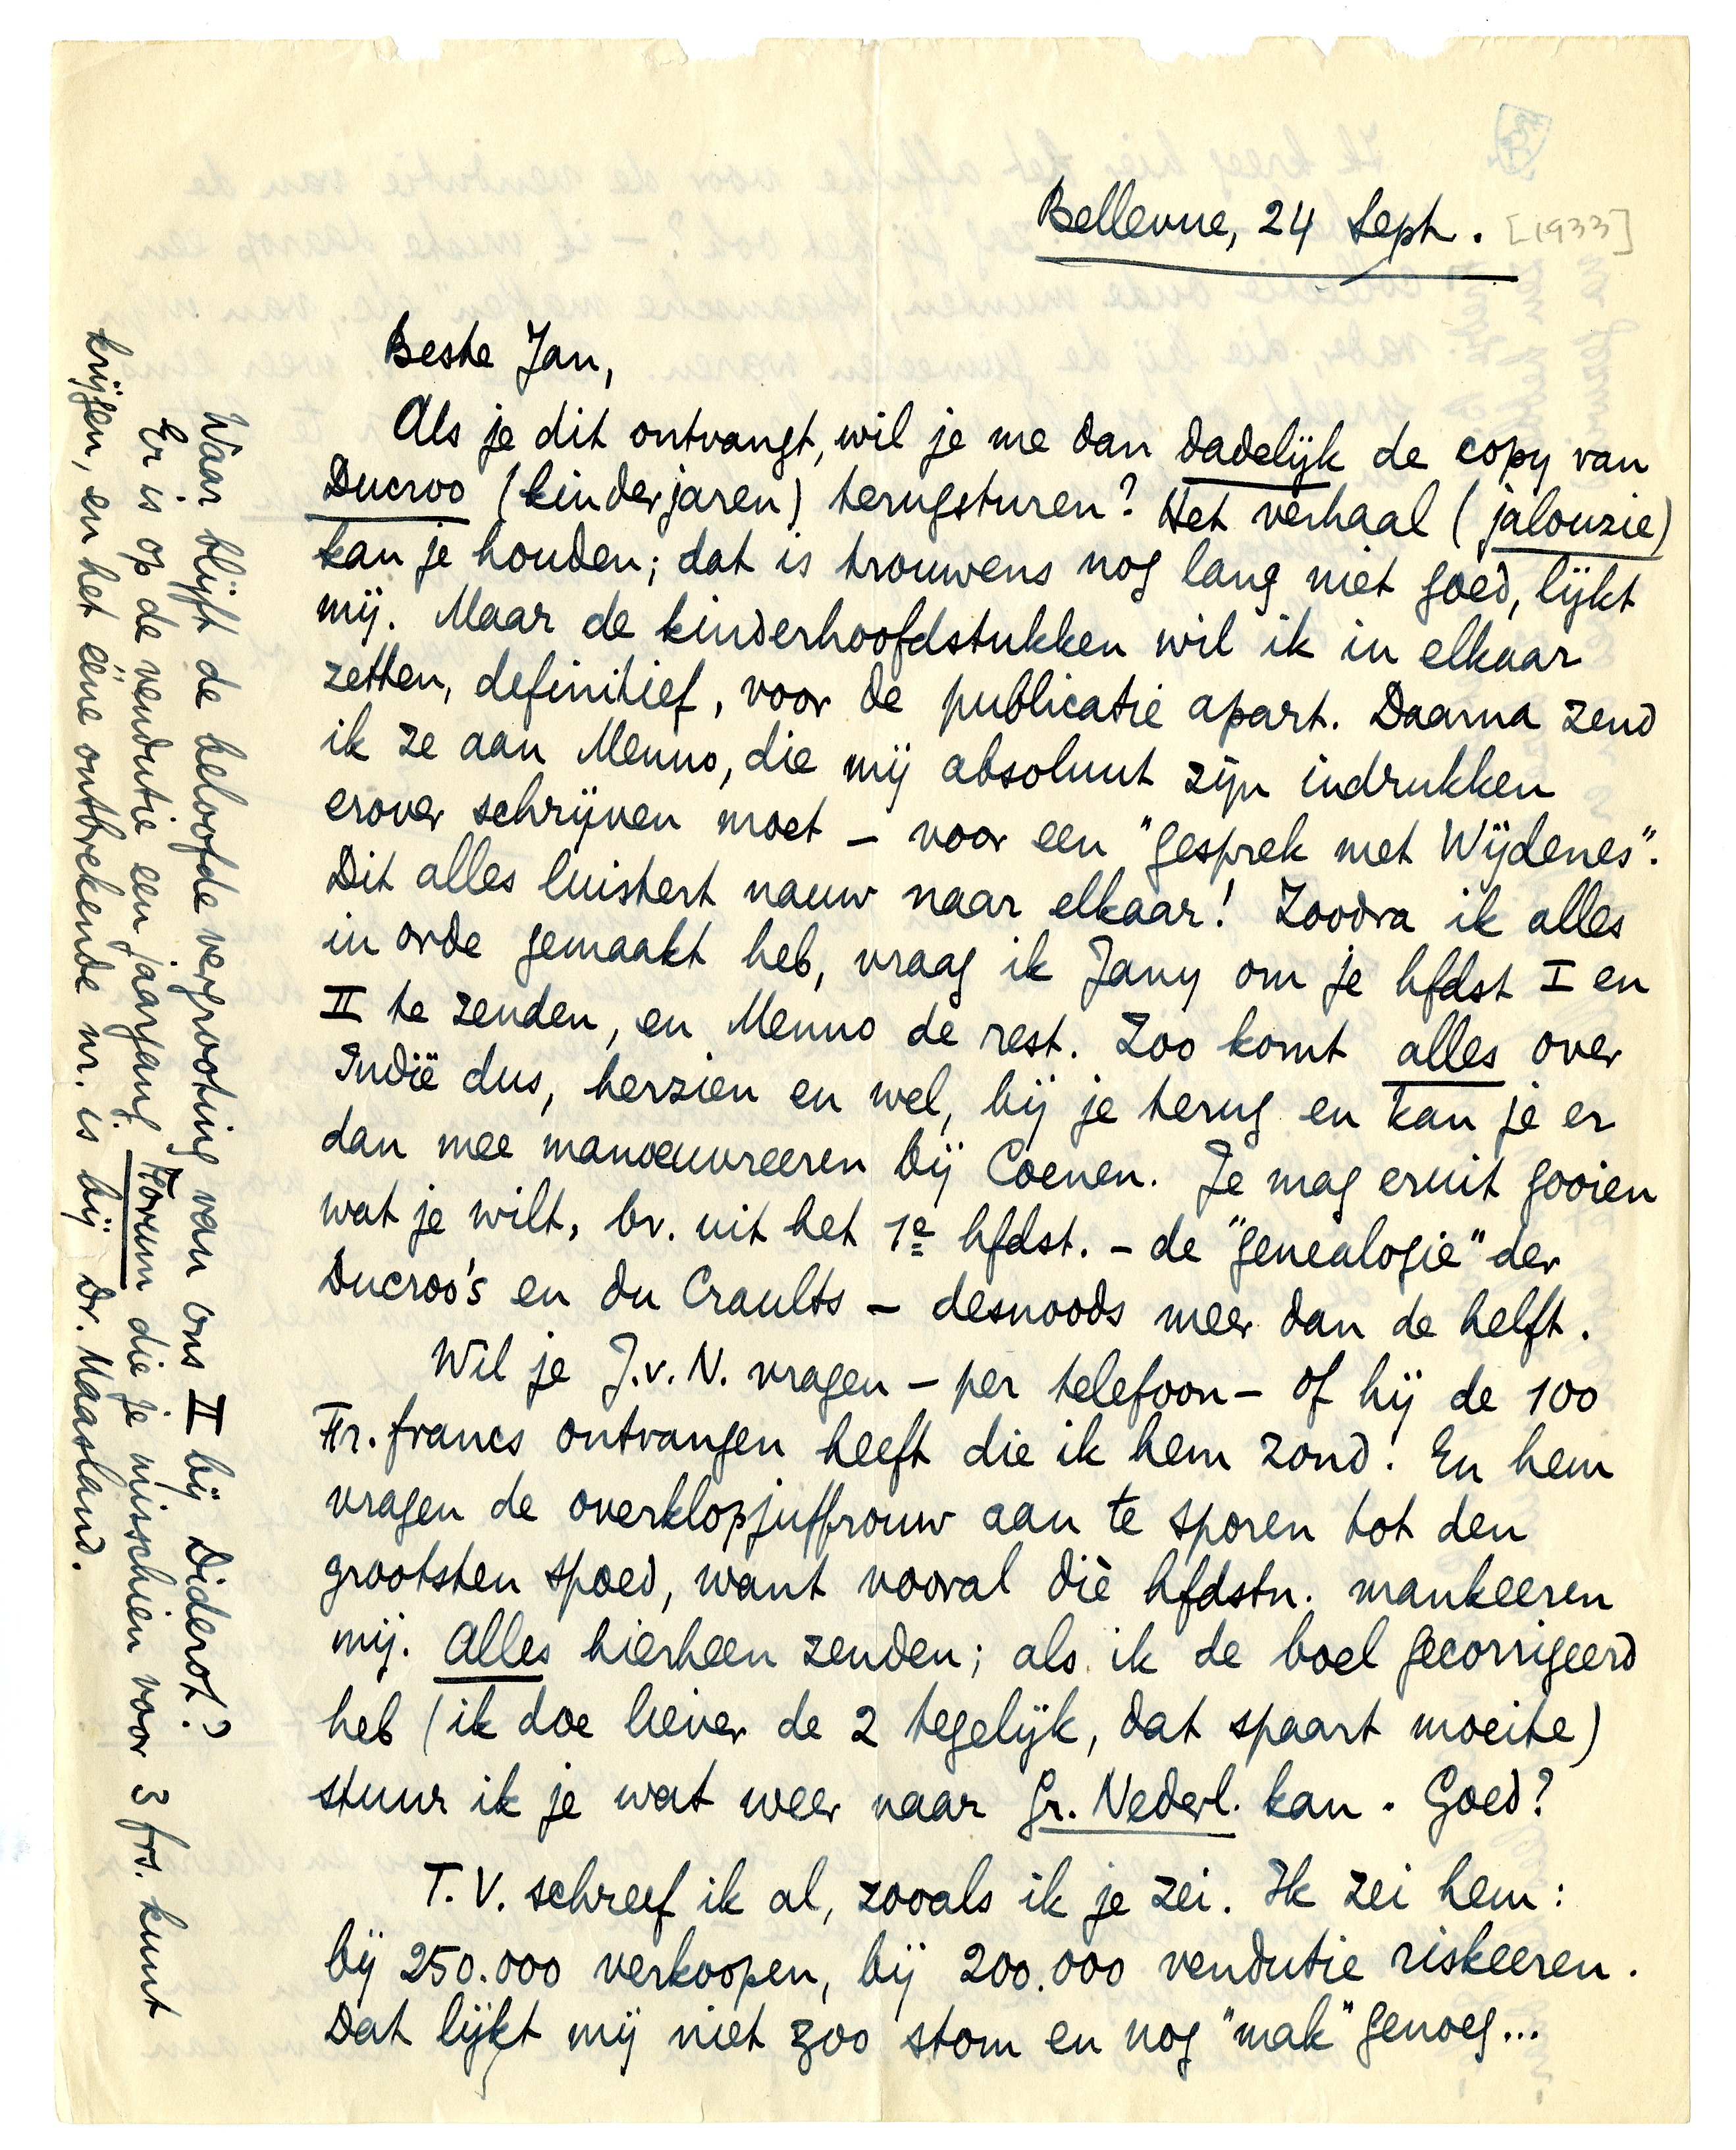 Bellevue, 24 Sept. [1933]
Beste Jan,
Als je dit ontvangt, wil je me dan dadelijk de copy van
Ducroo (kinderjaren) terugsturen? Het verhaal (jalouzie)
kan je houden; dat is trouwens nog lang niet goed, lijkt
mij. Maar de kinderhoofdstukken wil ik in elkaar
zetten, definitief, voor de publicatie apart. Daarna zend
ik ze aan Menno, die mij absoluut zijn indrukken
erover schrijven moet – voor een "gesprek met Wijdenes".
Dit alles luistert nauw naar elkaar! Zoodra ik alles
in orde gemaakt heb, vraag ik Jany om je hfdst I en
II te zenden, en Menno de rest. Zoo komt alles over
Indië dus, herzien en wel, bij je terug en kan je er
dan mee manoeuvreeren bij Coenen. Je mag eruit gooien
wat je wilt, bv. uit het 1e hfdst. – de "genealogie" der
Ducroo's en du Craults – desnoods meer dan de helft.
Wil je J.v.N. vragen – per telefoon – of hij de 100
Fr. francs ontvangen heeft die ik hem zond? En hem
vragen de overklopjuffrouw aan te sporen tot den
grootsten spoed, want vooral díe hfdstn. mankeeren
mij. Alles hierheen zenden; als ik de boel gecorrigeerd
heb (ik doe liever de 2 tegelijk, dat spaart moeite)
stuur ik je wat weer naar Gr. Nederl. kan. Goed?
T.V. schreef ik al, zooals ik je zei. Ik zei hem:
bij 250.000 verkoopen, bij 200.000 vendutie riskeeren.
Dat lijkt mij niet zoo stom en nog "mak" genoeg...
Waar blijft de beloofde vergrooting van ons II bij Diderot?
Er is op de vendutie een jaargang Forum die je misschien voor 3 frs. kunt
krijgen, en het ééne ontbrekende nr. is bij Dr. Maasland.